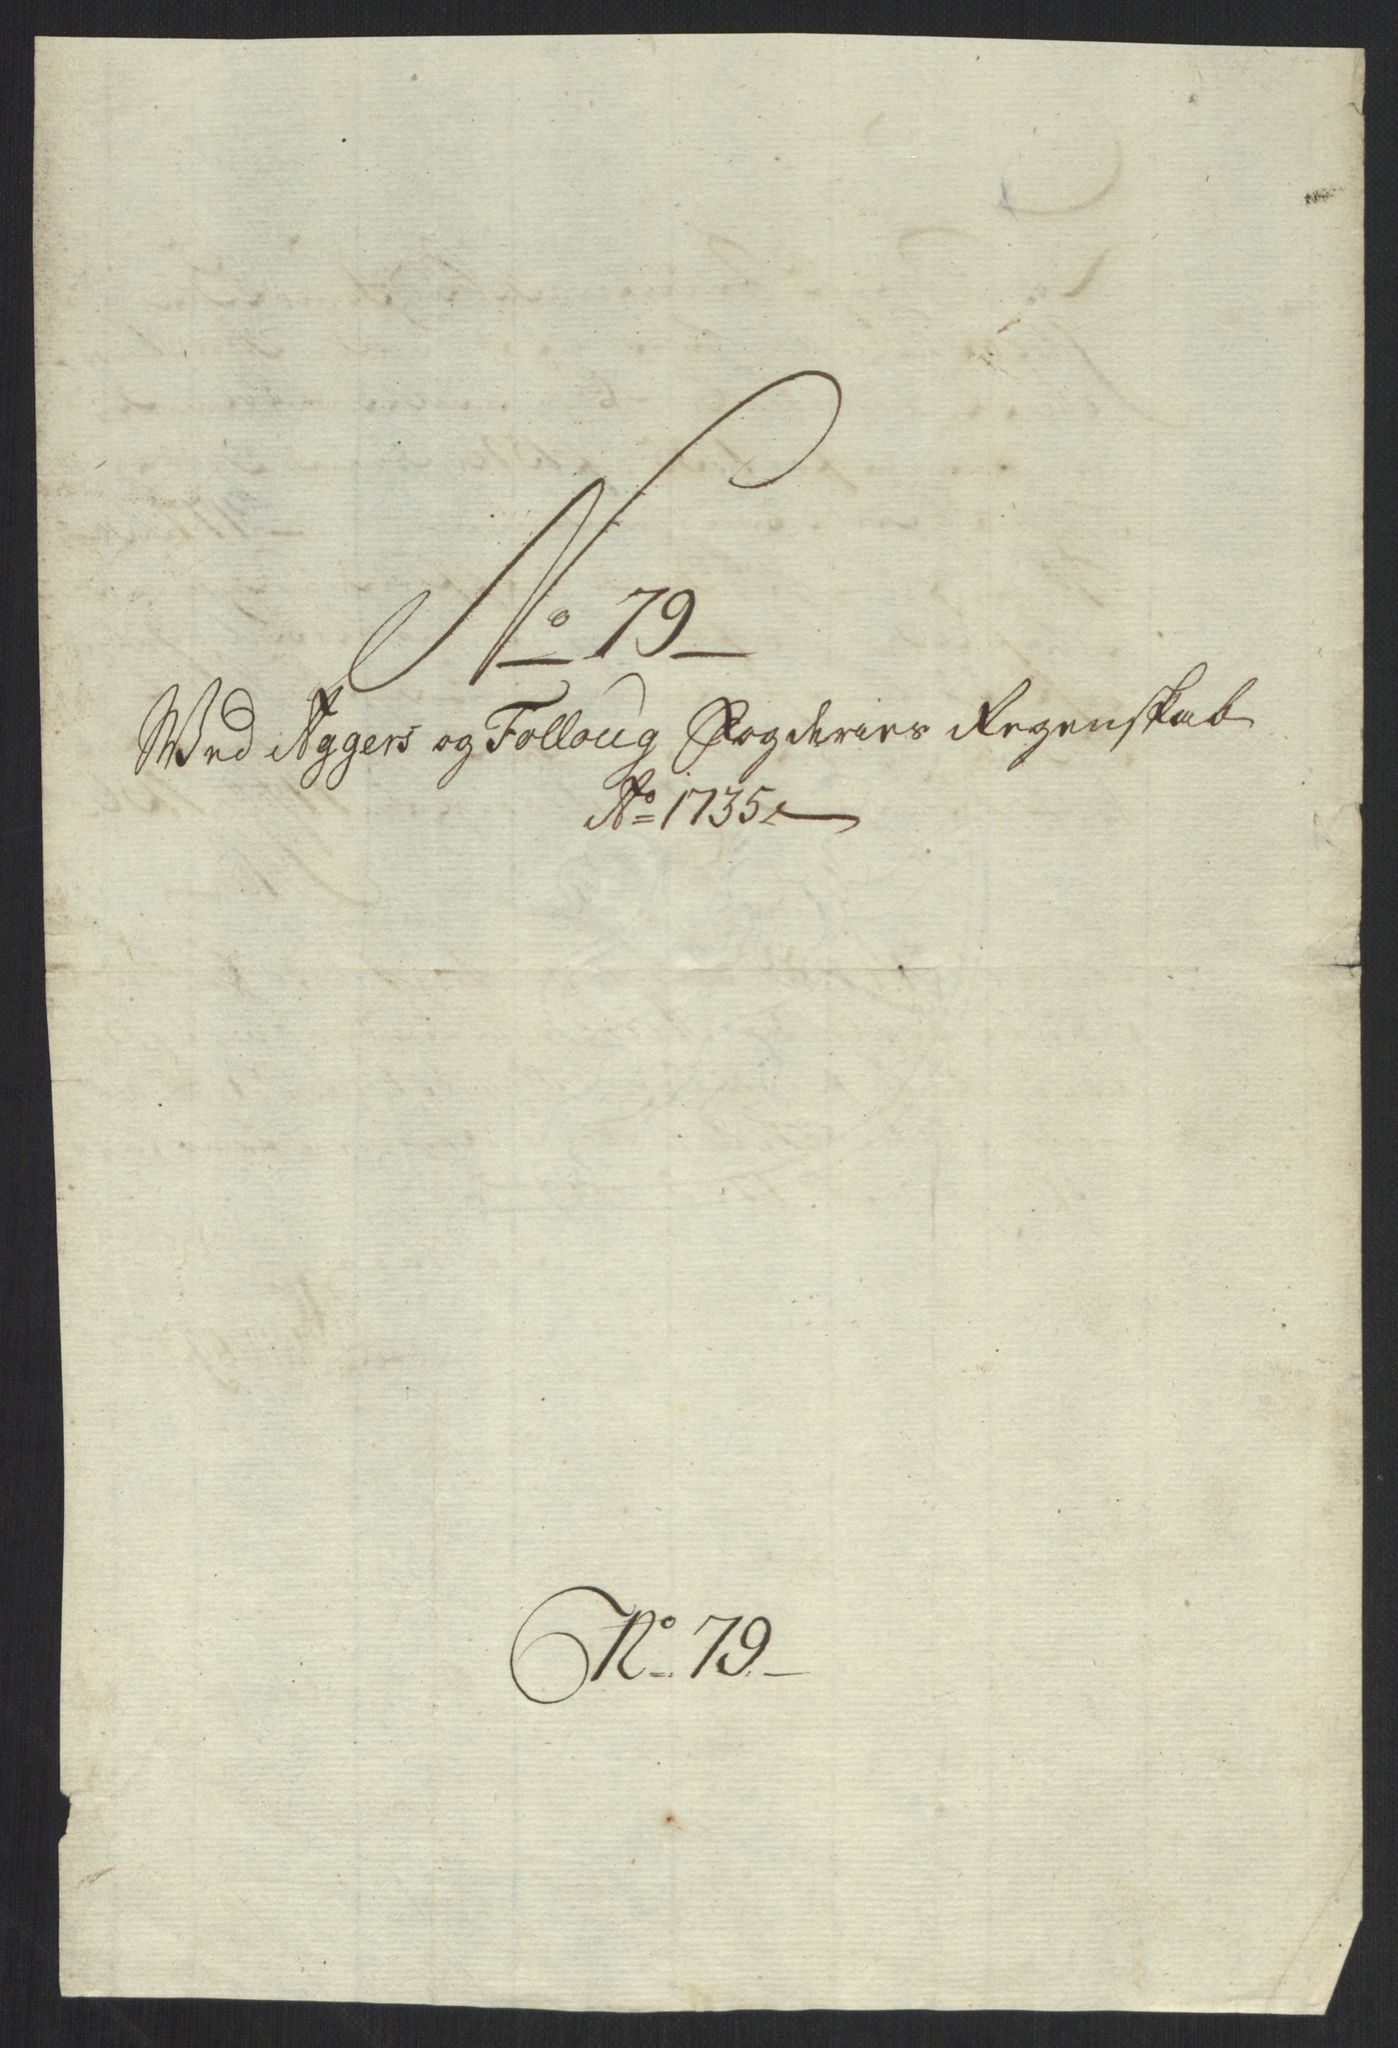 No 79
Wed Aggers og Folloug Fogderies Regenskab
Ao 1735
No 79